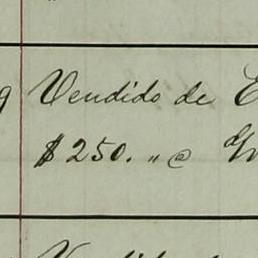 Vendido de
$250. " @